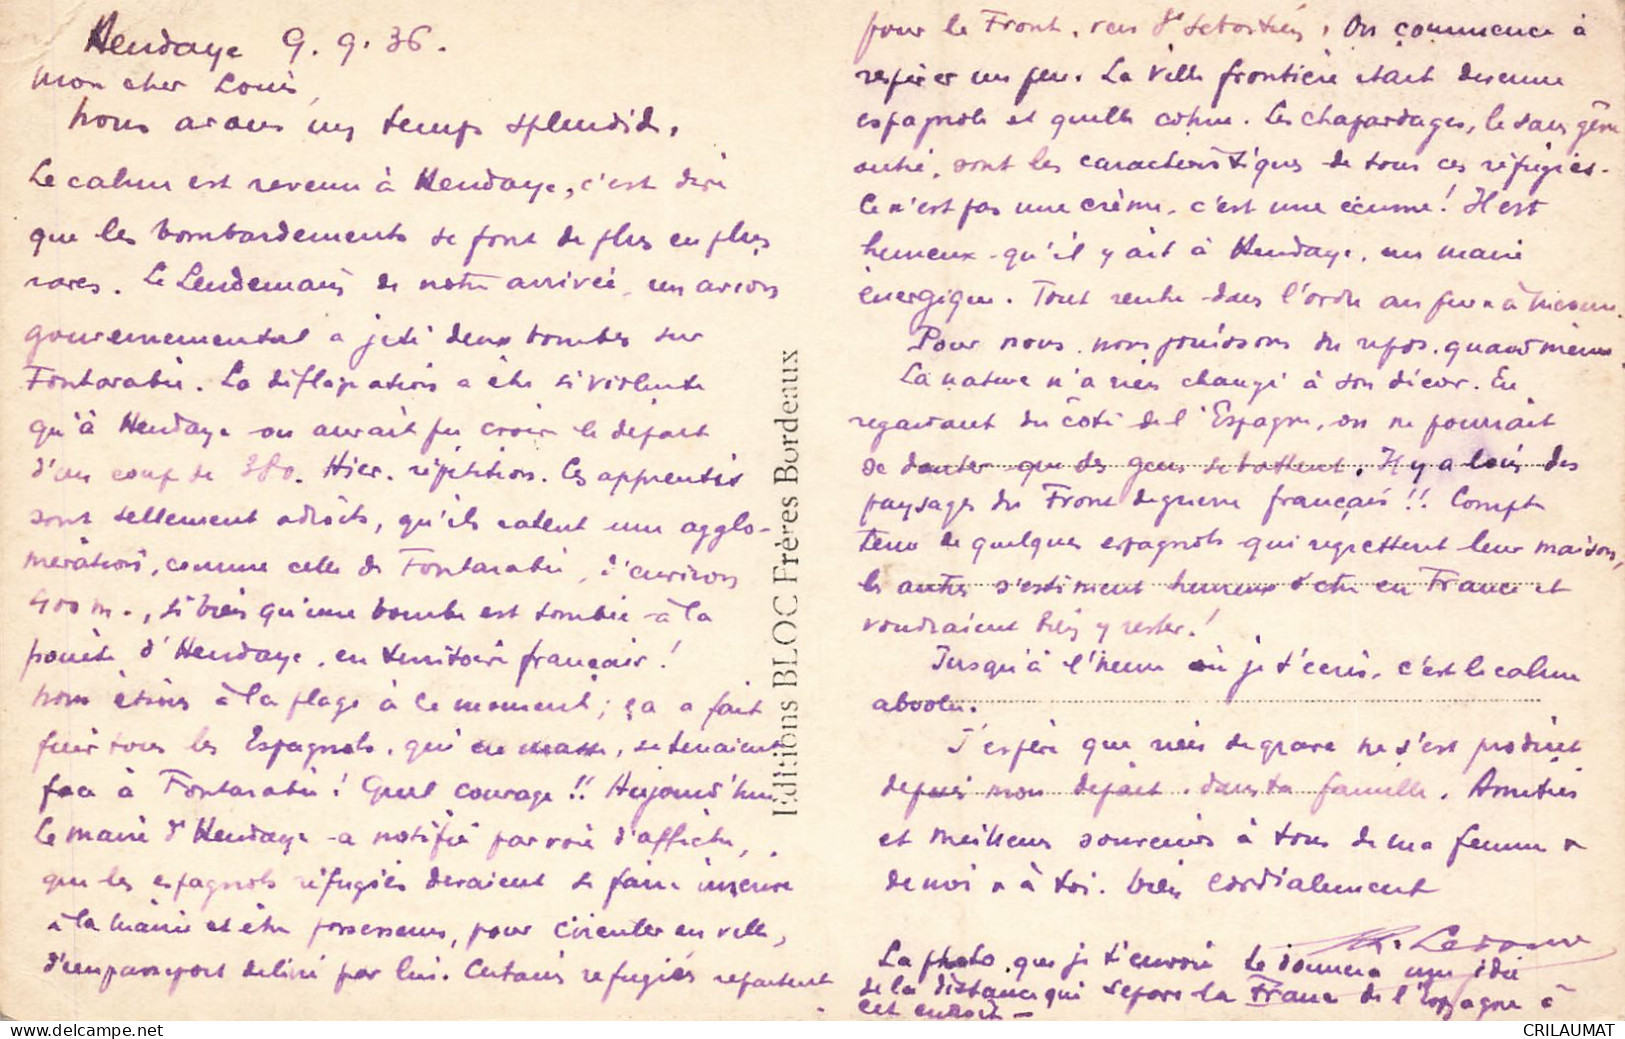 Hendaye 9.9.36.
Mon cher Louis,
Nous avons un temps splendide.
Le calme est revenu à Hendaye, c'est dire
que les bombardements se font de plus en plus
rares. Le Lendemain de notre arrivée, un avion
gouvernemental a jeté deux bombes sur
Fontarabie. La déflagration a été si violente
qu'à Hendaye on aurait pu croire le départ
d'un coup de 380. Hier, répétition. Ces apprentis
sont tellement adroits, qu'ils ratent une agglo-
mération, comme celle de Fontarabie, d'environ
400 m., si bien qu'une bombe est tombée à la
pointe d'Hendaye, en territoire français!
Nous étions à la plage à ce moment; ça a fait
fuir tous les Espagnols, qui en masse, se tenaient
face à Fontarabie! Quel courage!! Aujourd'hui
le maire d'Hendaye a notifié par voie d'affiche,
que les espagnols réfugiés devaient se faire inscrire
à la mairie et être possesseurs, pour circuler en ville,
d'un passeport délivré par lui. Certains réfugiés repartent
pour le Front, vers St Sébastien, On commence à
respirer un peu. La ville frontière était devenue
espagnole et quelle cohue. Les chapardages, le sans gêne
outré, sont les caractéristiques de tous ces réfugiés.
Ce n'est pas une crème, c'est une écume! Il est
heureux qu'il y ait à Hendaye, un maire
énergique. Tout rentre dans l'ordre au fur & à mesure.
Pour nous, nous jouissons du repos, quand même
La nature n'a rien changé à son décor. En
regardant du côté de l'Espagne, on ne pourrait
se douter que des gens se battent. Il y a loin des
paysages du Front de guerre français!! Compte
tenu de quelques espagnols qui regrettent leur maison,
les autres s'estiment heureux d'être en France et
voudraient bien y rester!
Jusqu'à l'heure où je t'écris, c'est le calme
absolu.
J'espère que rien de grave ne s'est produit
depuis mon départ, dans ta famille. Amitiés
et meilleurs souvenirs à tous de ma femme &
de moi & à toi. bien cordialement
La photo que je t'envoie te donnera une idée
de la distance qui sépare la France de l'Espagne à
cet endroit -
Editions BLOC Frères Bordeaux
CRILAUMAT